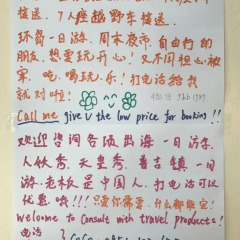 接送，7人座越野车接送。
环岛一日游，周末夜市，自由行的
朋友，想要玩开心！又不用担心被
宰，吃，喝玩，乐！打电话给我
就对啦！
Call me give U the low price for booking!!
欢迎咨询各项出海一日游，
人妖秀，天皇秀，普吉镇一日
游。老板是中国人，打电话可以
优惠哦!!!只要你需要，什么都能定!
Welcome to Consult with travel products!
电话